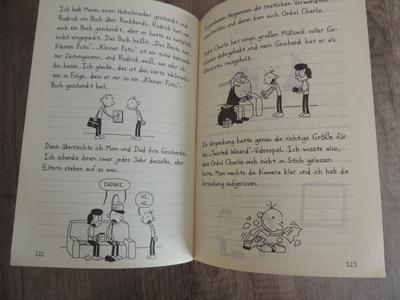 Ich hab Manni einen Hubschrauber geschenkt und
Rodrick ein Buch über Rockbands. Rodrick hat mir
auch ein Buch geschenkt, aber er hatte es natürlich
nicht eingepackt. Das Buch hieß „Das Beste von
Kleiner Putzi“. „Kleiner Putzi“ ist ein total bekannter
Zeitungscomic, und Rodrick weiß, wie sehr ich
ihn hasse. Ich glaube, das ist das vierte Weihnachten
in Folge, dass er mir so ein „Kleiner Putzi“-
Buch geschenkt hat.
Dann überreichte ich Mom und Dad ihre Geschenke.
Ich schenke ihnen zwar jedes Jahr dasselbe, aber
Eltern stehen auf so was.
DANKE.
HI,
HI.
122
begannen die restlichen Verwandten
und dann kam auch Onkel Charlie.
Onkel Charlie hat einen großen Müllsack voller Geschenke
dabeigehabt, und mein Geschenk hat er als
rausgeholt.
Die Verpackung hatte genau die richtige Größe für
das „Twisted Wizard“-Videospiel. Ich wusste also,
dass Onkel Charlie mich nicht im Stich gelassen
hatte. Mom machte die Kamera klar und ich hab die
Verpackung aufgerissen.
123